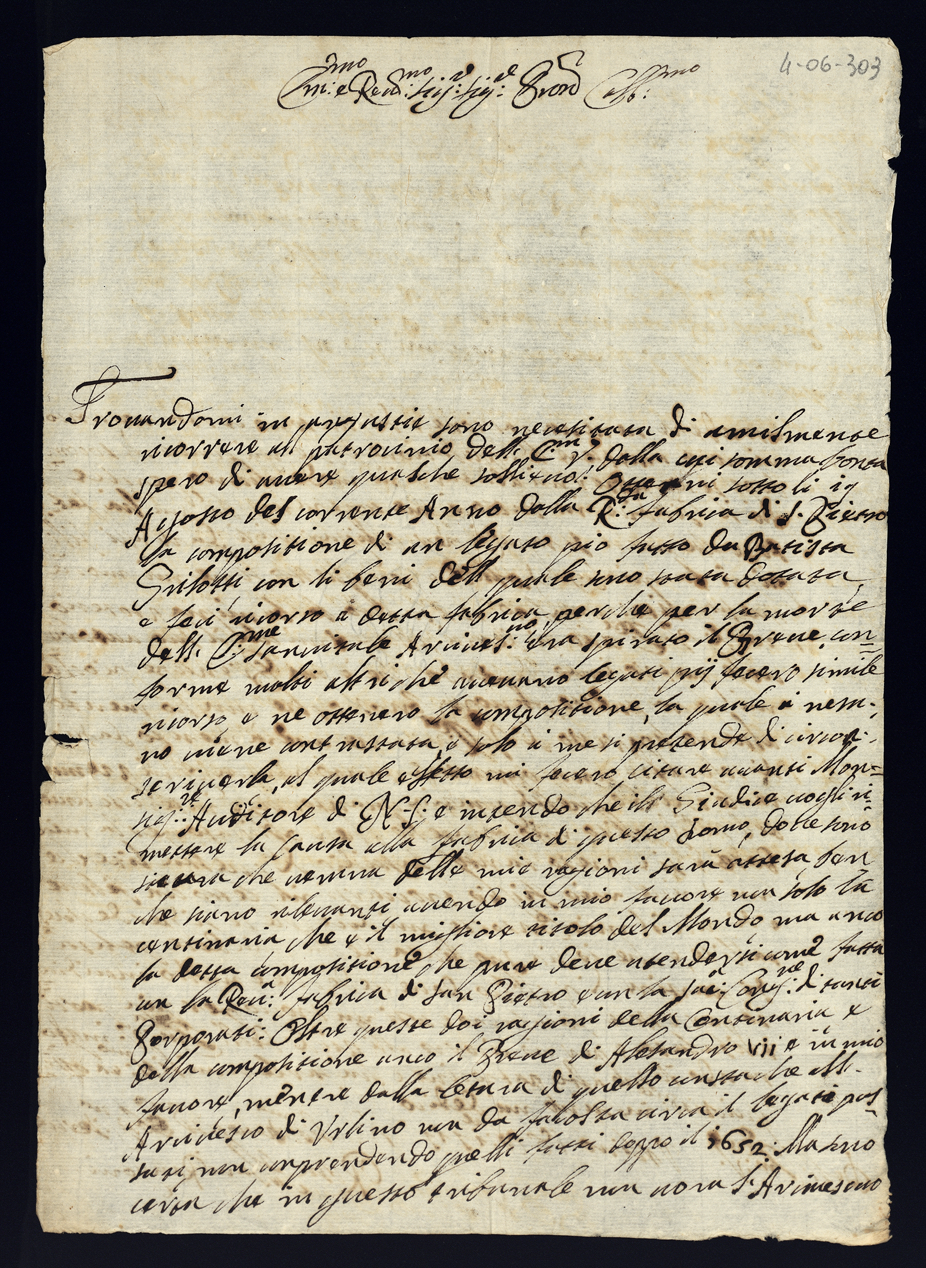 4-06-303
Em.mo e Rev.mo Sig.r Sig.r Pron Coll.mo
Trovandomi in angustie sono necessitata di umilmente
ricorrere al patrocinio dell' E.ma V.a dalla cui somma bontà
spero di avere qualche sollievo: Ottenni sotto li
Agosto del corrente Anno dalla R.da fabrica di S. Pietro
la compositione di un legato pio fatto da Batista
Grilotti, con li beni del quale sono stata dotata,
e feci ricorso a detta fabrica, perche per la morte
dell' E.me Arcives.no era spirato il Breve, con=
forme molti altri che avevano legati pij fecero simile
ricorso e ne ottenero la compositione, la quale a nesu=
no viene contrastata, e solo a me si pretende di circon=
scriverla, al quale effetto mi fecero citare avanti Mon=
sig.re Auditore di N.S. e intendo che il Giudice vogli ri=
mettere la Causa alla fabrica di questo domo, dove sono
sicura che veruna delle mie ragioni sarà attesa, ben
che siano rilevanti avendo in mio favore non solo la
centinaria che è il migliore titolo del Mondo ma anco
la detta compositione, che pure deve atendersi come fatta
con la Rev.a fabrica di San Pietro e con la Sac. Cong.ne di tanti
Porporati: Oltre queste doi ragioni della Centinaria e
della compositione anco il Breve di Alesandro VII è in mio
favore, mentre dalla letura di quello consta che all'
Arcivesco di Urbino non da facolta circa il legati pas=
sati, non comprendendo quelli fatti doppo il 1652: Ma sono
certa che in questo tribunale non vora l'Arcivescovo